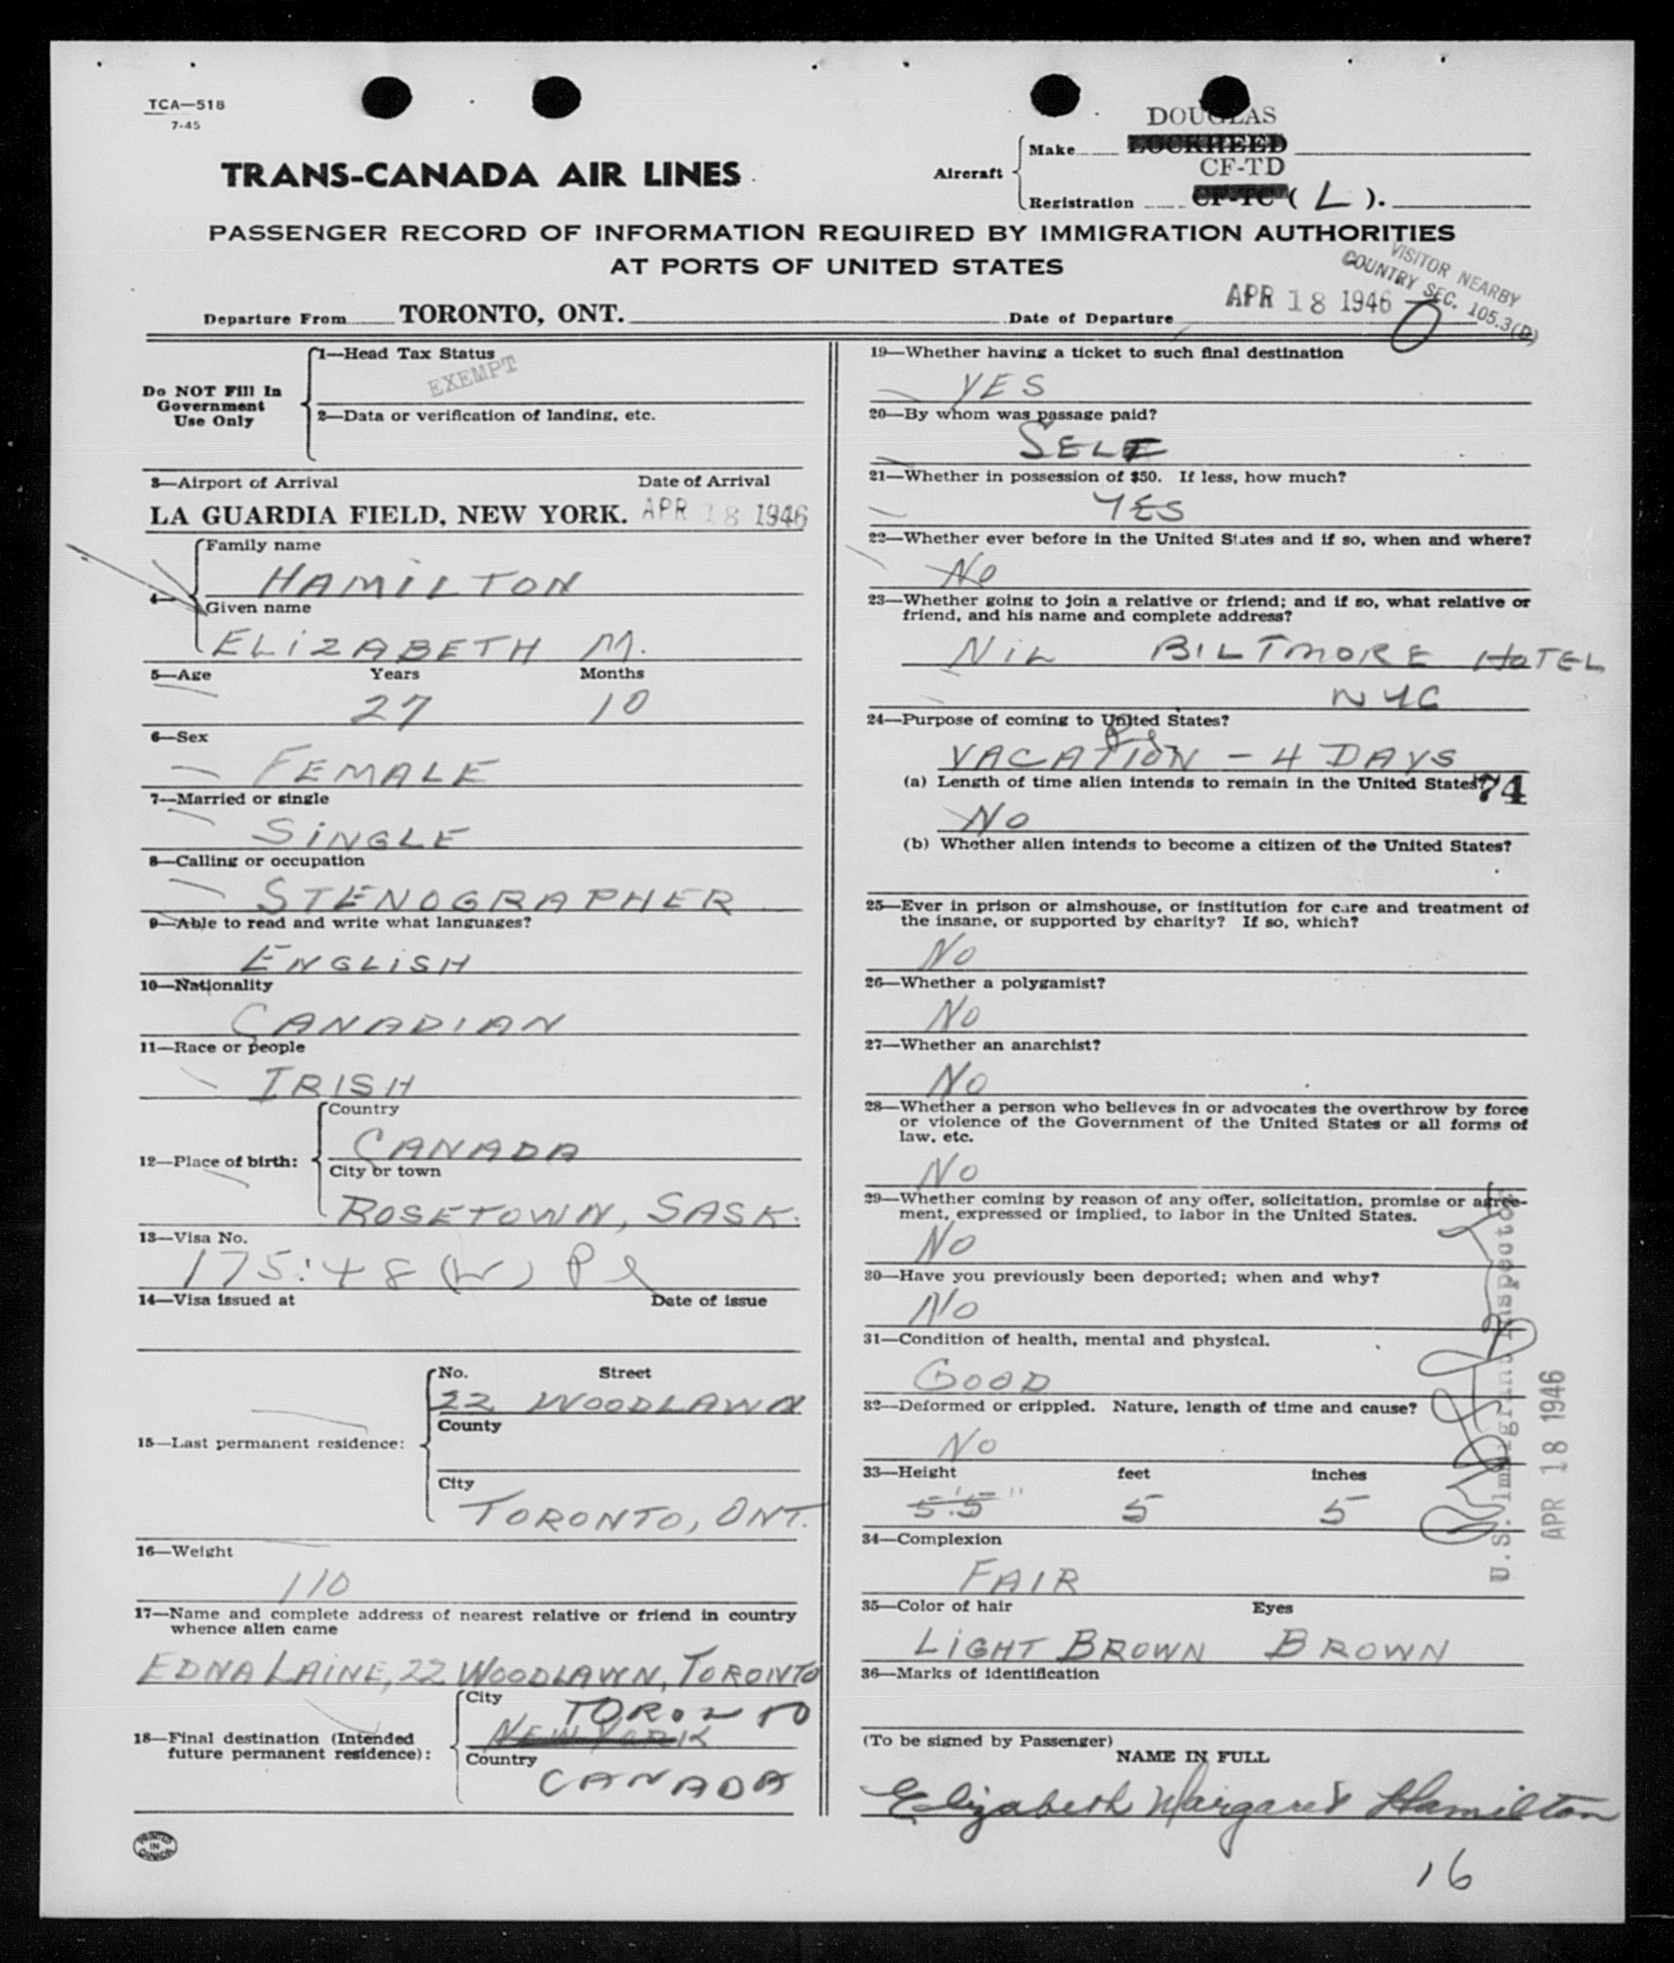 TCA—518
7-45
DOUGLAS
Aircraft
Make LOCKHEED
CF-TD
Registration CF-TC ( L ).
TRANS-CANADA AIR LINES
PASSENGER RECORD OF INFORMATION REQUIRED BY IMMIGRATION AUTHORITIES
AT PORTS OF UNITED STATES
VISITOR NEARBY
COUNTRY SEC. 105.3(D)
Departure From TORONTO, ONT. Date of Departure APR 18 1946
Do NOT Fill In
Government
Use Only
1—Head Tax Status
EXEMPT
2—Data or verification of landing, etc.
3—Airport of Arrival Date of Arrival
LA GUARDIA FIELD, NEW YORK. APR 18 1946
4—
Family name
HAMILTON
Given name
ELIZABETH M.
5—Age Years Months
27 10
6—Sex
FEMALE
7—Married or single
SINGLE
8—Calling or occupation
STENOGRAPHER
9—Able to read and write what languages?
ENGLISH
10—Nationality
CANADIAN
11—Race or people
IRISH
12—Place of birth:
Country
CANADA
City or town
ROSETOWN, SASK.
13—Visa No.
175:48 (W)
14—Visa issued at Date of issue
15—Last permanent residence:
No. Street
22 WOODLAWN
County
City
TORONTO, ONT.
16—Weight
110
17—Name and complete address of nearest relative or friend in country
whence alien came
EDNA LAINE, 22 WOODLAWN, TORONTO
18—Final destination (Intended
future permanent residence):
City
TORONTO
NEW YORK
Country
CANADA
PRINTED
IN
CANADA
19—Whether having a ticket to such final destination
YES
20—By whom was passage paid?
SELF
21—Whether in possession of $50. If less, how much?
YES
22—Whether ever before in the United States and if so, when and where?
No
23—Whether going to join a relative or friend; and if so, what relative or
friend, and his name and complete address?
NIL BILTMORE HOTEL
NYC
24—Purpose of coming to United States?
VACATION - 4 DAYS
(a) Length of time alien intends to remain in the United States?
74
No
(b) Whether alien intends to become a citizen of the United States?
25—Ever in prison or almshouse, or institution for care and treatment of
the insane, or supported by charity? If so, which?
No
26—Whether a polygamist?
No
27—Whether an anarchist?
No
28—Whether a person who believes in or advocates the overthrow by force
or violence of the Government of the United States or all forms of
law, etc.
No
29—Whether coming by reason of any offer, solicitation, promise or agree-
ment, expressed or implied, to labor in the United States.
No
30—Have you previously been deported; when and why?
No
31—Condition of health, mental and physical.
GOOD
32—Deformed or crippled. Nature, length of time and cause?
No
33—Height feet inches
5'5" 5 5
34—Complexion
FAIR
35—Color of hair Eyes
LIGHT BROWN BROWN
36—Marks of identification
U.S. Immigrant Inspector
APR 18 1946
(To be signed by Passenger)
NAME IN FULL
Elizabeth Margaret Hamilton
16